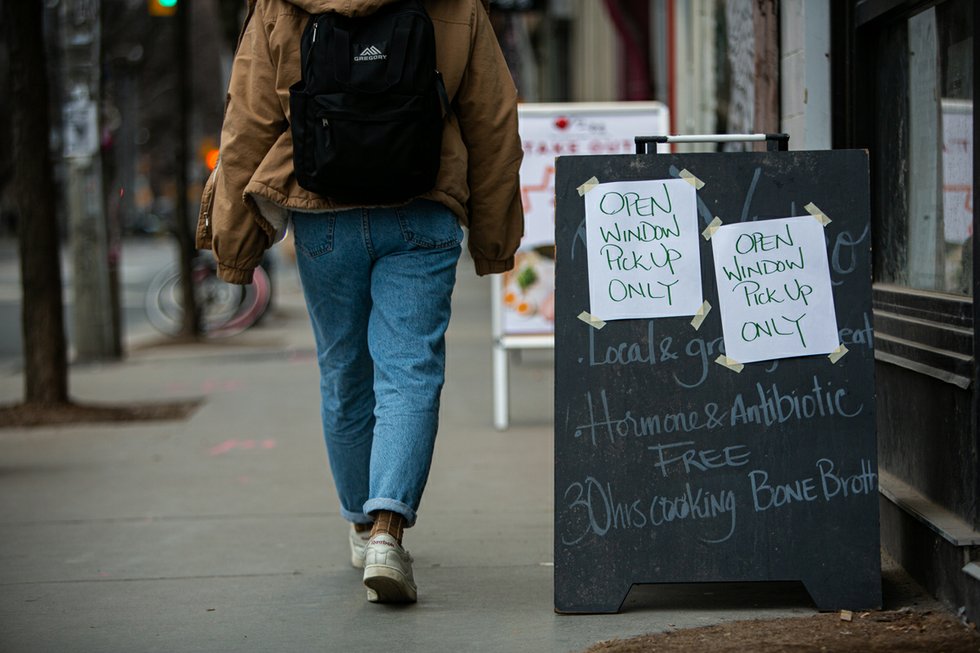 GREGORY
TAKE OUT
OPEN
WINDOW
PICK UP
ONLY
OPEN
WINDOW
PICK UP
ONLY
Local &
Hormone & Antibiotic
FREE
30hrs cooking Bone Broth